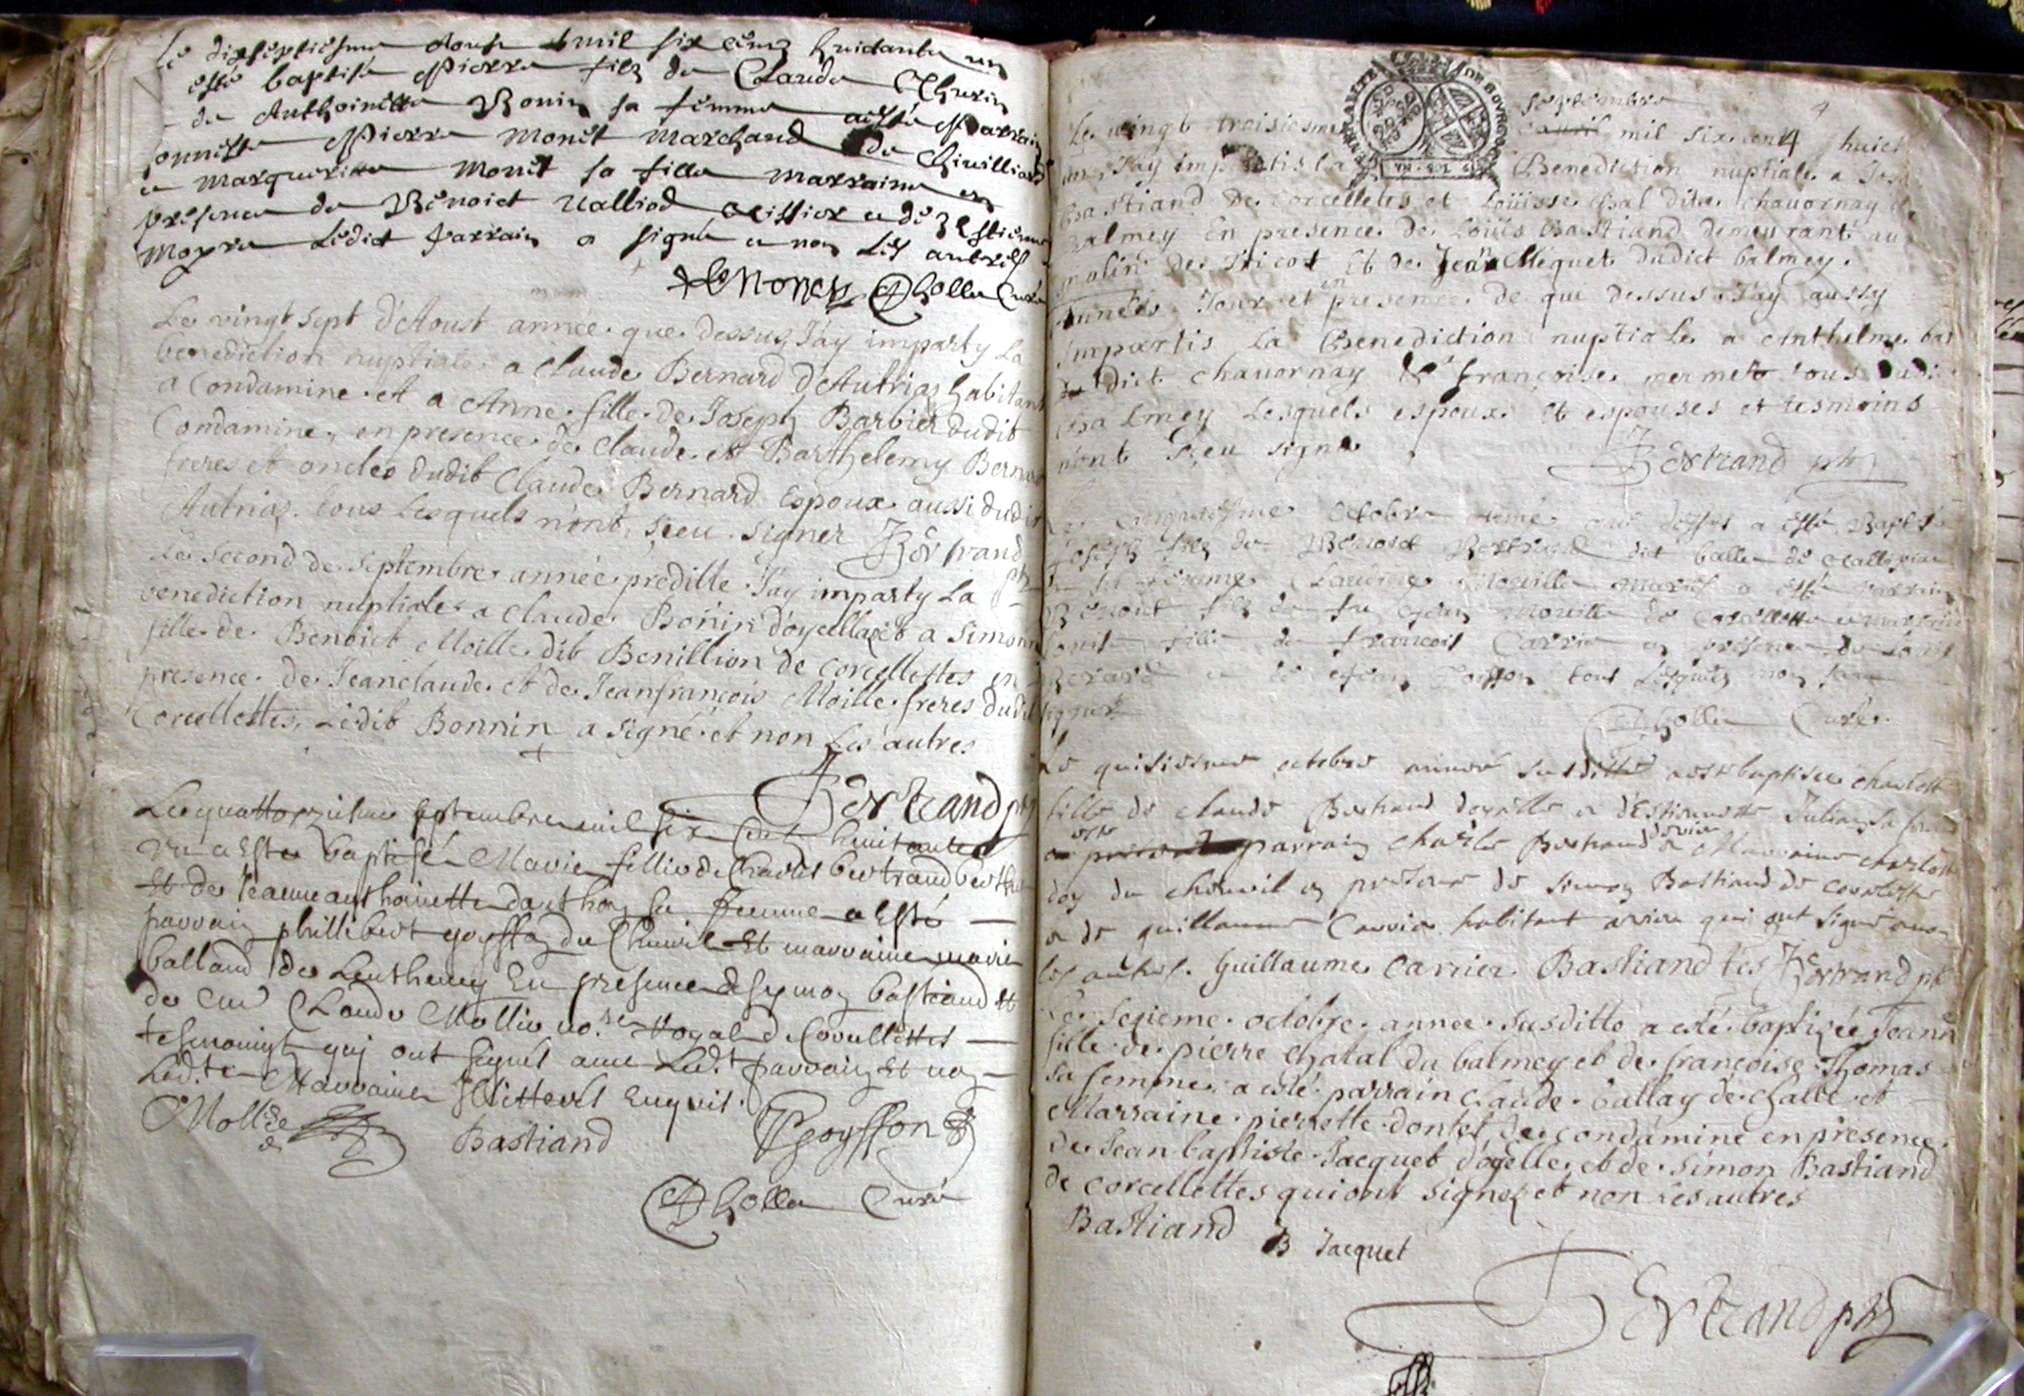 Le dixseptiesme Aoust mil six cens huictante un
esté baptisé Pierre filz de Claude
de Anthoinette Bonin sa femme a esté Parrain
honneste Pierre Monet Marchand de Chevillard
e Marguerite Monet sa fille marraine en
présence de Benoict
Moyra Ledict parrain a signé e non les autres
Cholla Curé
Le vingt sept d'Aoust année que dessus J'ay imparty La
benediction nuptiale a Claude Bernard d'Autriaz habitant
a Condamine et a Anne fille de Joseph Barbier dudit
Condamine, en presence de Claude et Barthelemy Bernard
freres et oncles dudit Claude Bernard Espoux aussi dudit
Autriaz tous Lesquels n'ont sçeu signer Bertrand
Le second de septembre année preditte J'ay imparty La pbr
benediction nuptiale a Claude Bonin d'oyella et a Simonne
fille de Benoict Moille dit Benillion de corcellettes en
presence de Jeanclaude et de Jeanfrançois Moille freres dudit
Corcellettes, Ledit Bonnin a signé et non Les autres
Bertrand pbr
Le quattorziesme septembre mil six cent huictante
un a esté baptisée Marie fillie de Charles bertrand
Et de Jeanne anthoinette sa femme a esté
parrain phillibert goyffon du Chevril Et marraine marie
balland de Leutheney En presence de symon bastiand Et
de me Claude Mollie no.re Royal de Corcellettes
tesmoingt quj ont signés avec Led.t parrain Et non
Led.te Marraine
Mollie Bastiand P goyffon
Cholla Curé
septembre
Le vingt troisiesme avril mil six cent 4 huict
un J'ay impartis la Benediction nuptiale a
Bastiand de corcelletes et Loüisse chal dite chavornay de
balmey en presence de Loüis Bastiand demeurant au
molin des Tricot Et de Jean Mequet dudict balmey.
Années Jour et en presence de que dessus J'ay aussy
impartis la Benediction nuptiale a Anthelme
dict chavornay & françoise mermet tous dudi
Balmey Lesquels espoux Et espouses et tesmoins
n'ont sçeu signe Bertrand pbr
octobre année que dessus a esté Baptisé
Joseph filz de Benoict Bertrand dit balla
sa femme Claudine Moille mariés a esté parrain
Benoit filz de fu Jean Moille de Corcellette e marraine
Louise fille de francois Carrier en présence de Louis
signer
Cholla Curé
Le quisiesme octobre année susditte a esté baptisee charlotte
fille de claude Bertrand doyelle e d'Estiennette sa femme
este parrain charles Bertrand e Marraine charlotte
du chevril en presence de simon Bastiand de corcelette
e de guillaume Carrier habitant qui ont signé e non
les autres. Guillaume Carrier Bastiand tes Bertrand pbr
Le Sezieme octobre année susditte a esté baptizée Jeanne
fille de pierre chatal du balmey et de françoise Thomas
sa femme, a esté parrain Claude ballay de challe et
Marraine pierrette dontel de condamine en presence
de Jean baptiste Jacquet d'oyelle et de simon Bastiand
de corcellettes qui ont signez et non Les autres
Bastiand B Jacquet
Bertrand pbr